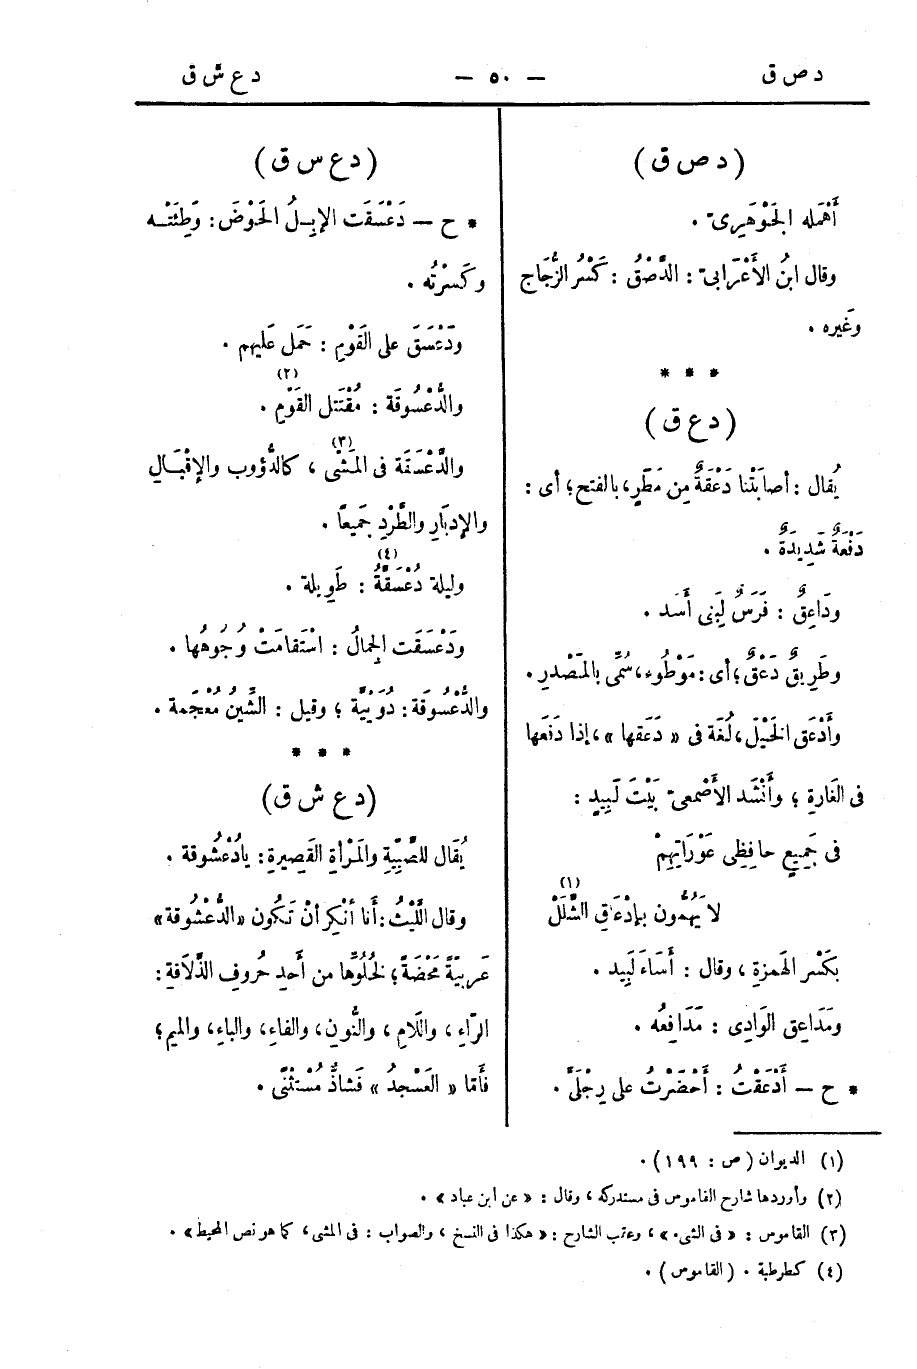 د ص ق — ٥٠ — د ع ش ق
( د ص ق )
أَهْمَله الجَوْهَرِىّ .
وقال ابنُ الأَعْرَابىّ : الدَّصْقُ : كَسْرُ الزُّجَاج
وغَيره .
* * *
( د ع ق )
يُقال : أصابَتْنا دَعْقَةٌ مِن مَطَرٍ ، بالفتح ؛ أى :
دَفْعَةٌ شَدِيدَةٌ .
ودَاعِقٌ : فَرَسٌ لِبَنِى أَسَد .
وطَرِيقٌ دَعْقٌ ؛ أى : مَوْطُوء ، سُمِّى بالمَصْدرِ .
وأَدْعَق الخَيْلَ ، لُغَة فى « دَعَقها » ، إذا دَفَعها
فى الغَارةِ ؛ وأَنْشَد الأَصْمعىّ بَيْتَ لَبِيدٍ :
فى جَمِيعٍ حافِظِى عَوْرَاتِهِمْ
لا يَهُمُّون بإدْعَاقِ الشَّلَلْ (١)
بكَسْر الهَمزةِ ، وقال : أَسَاءَ لَبِيد .
ومَدَاعِق الوَادِى : مَدَافِعُه .
* ح — أَدْعَقْتُ : أَحْضَرْتُ على رِجْلَىَّ .
( د ع س ق )
* ح — دَعْسَقَت الإبِـلُ الحَوْضَ : وَطِئَتْـه
وكَسَرْتُه .
ودَعْسَقَ على القَوْمِ : حَمَل عَليهم .
والدُّعْسُوقَة : مُقْتَتل القَوْمِ (٢) .
والدَّعْسَقَة فى المَشْىِ (٣) ، كالدُّؤوب والإِقْبَالِ
والإدبَارِ والطَّرْدِ جَمِيعًا .
وليلة دُعْسُقَّةُ (٤) : طَوِيلة .
ودَعْسَقَت الجِمالُ : اسْتَقامَتْ وُجُوهُها .
والدُّعْسُوقَة : دُوَيْبَّة ؛ وقيل : الشِّينُ مُعْجَمة .
* * *
( د ع ش ق )
يُقَال للصَّبِيَّةِ والمَرْأَةِ القَصِيرةِ : يادُعْشُوقة .
وقال اللَّيْثُ : أَنا أنْكِر أنْ تَكُون «الدُّعْشُوقة»
عَربيّةً مَحْضَةً ؛ لخُلُوِّها من أَحدِ حُروفِ الذَّلَاقةِ :
الرّاءِ ، واللّامِ ، والنُّونِ ، والفاءِ ، والباءِ ، والميم ؛
فأمّا « العَسْجدُ » فَشاذٌّ مُسْتثْنًى .
(١) الديوان ( ص : ١٩٩ ) .
(٢) وأوردها شارح القاموس فى مستدركه ، وقال : « عن ابن عباد » .
(٣) القاموس : « فى الشىء » ، وعقب الشارح : « هكذا فى النسخ ، والصواب : فى المشى ، كما هو نص المحيط » .
(٤) كطرطبة . ( القاموس ) .